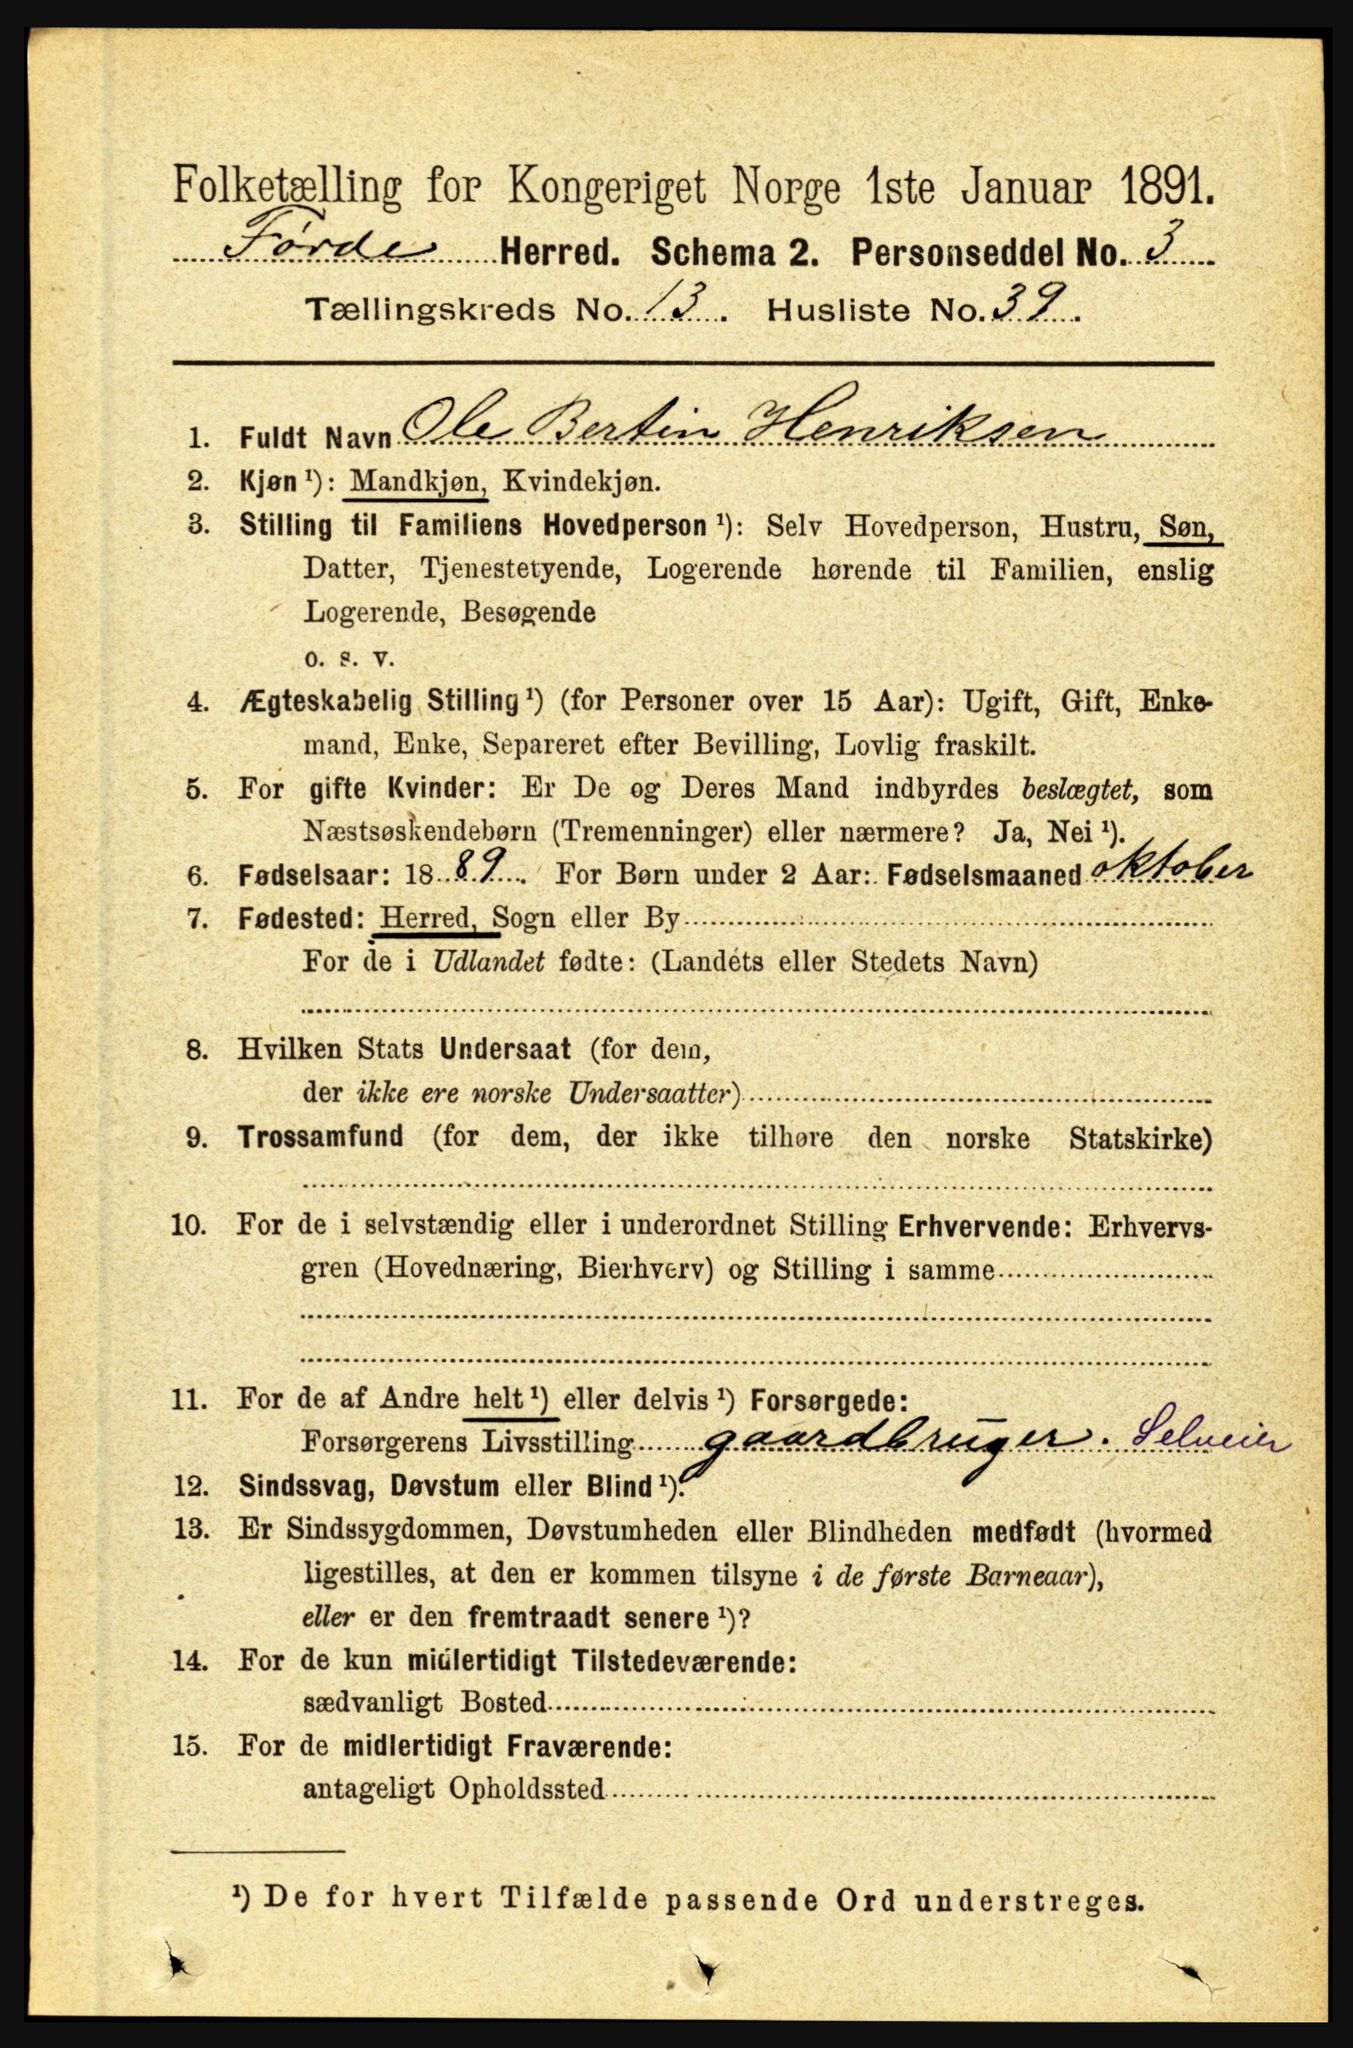 Folketælling for Kongeriget Norge 1ste Januar 1891.
Førde Herred. Schema 2. Personseddel No. 3
Tællingskreds No. 13. Husliste No. 39.
1. Fuldt Navn Ole Bertin Henriksen
2. Kjøn ¹): Mandkjøn, Kvindekjøn.
3. Stilling til Familiens Hovedperson ¹): Selv Hovedperson, Hustru, Søn,
Datter, Tjenestetyende, Logerende hørende til Familien, enslig
Logerende, Besøgende
o. s. v.
4. Ægteskabelig Stilling ¹) (for Personer over 15 Aar): Ugift, Gift, Enke-
mand, Enke, Separeret efter Bevilling, Lovlig fraskilt.
5. For gifte Kvinder: Er De og Deres Mand indbyrdes beslægtet, som
Næstsøskendebørn (Tremenninger) eller nærmere? Ja, Nei ¹).
6. Fødselsaar: 1889. For Børn under 2 Aar: Fødselsmaaned oktober
7. Fødested: Herred, Sogn eller By
For de i Udlandet fødte: (Landets eller Stedets Navn)
8. Hvilken Stats Undersaat (for dem,
der ikke ere norske Undersaatter)
9. Trossamfund (for dem, der ikke tilhøre den norske Statskirke)
10. For de i selvstændig eller i underordnet Stilling Erhvervende: Erhvervs-
gren (Hovednæring, Bierhverv) og Stilling i samme
11. For de af Andre helt ¹) eller delvis ¹) Forsørgede:
Forsørgerens Livsstilling gaardbruger. Selveier
12. Sindssvag, Døvstum eller Blind ¹).
13. Er Sindssygdommen, Døvstumheden eller Blindheden medfødt (hvormed
ligestilles, at den er kommen tilsyne i de første Barneaar),
eller er den fremtraadt senere ¹)?
14. For de kun midlertidigt Tilstedeværende:
sædvanligt Bosted
15. For de midlertidigt Fraværende:
antageligt Opholdssted
¹) De for hvert Tilfælde passende Ord understreges.